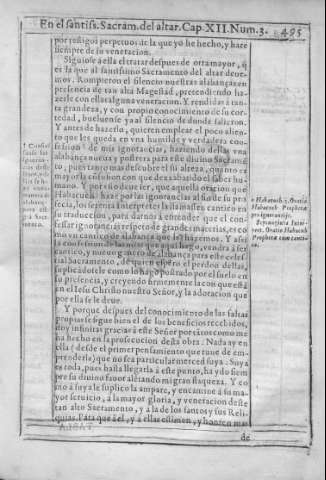 En el santiss. Sacram. del altar. Cap. XII. Num. 3. 485
por testigos perpetuos de la que yo he hecho, y hare
siempre de su veneracion.
Siguiose a ella el tratar despues de otra mayor, q̃
es la que al santissimo Sacramento del altar deue-
mos. Rompieron el silencio nuestras alabanças en
presencia de tan alta Magestad, pretendiendo ha-
zerle con ellas alguna veneracion. Y rendidas a tan-
ta grandeza, y con propio conocimiento de su cor-
tedad, bueluense ya al silencio de donde salieron.
Y antes de hazerlo, quieren emplear el poco alien-
to que les queda en vna humilde y verdadera con-
fession de mis ignorancias, haziendo della vna
alabança nueua y postrera para este diuino Sacramẽ-
to, pues tanto mas descubre el su alteza, quanto es
mayor la confusion con que dexa al saber hu-
mano. Y por esto deue ser, que aquella oracion que
Habacuc haze por las ignorancias al fin de su pro-
fecia, los setenta interpretes la llamassen cantico en
su traduccion, para darnos a entender que el con-
fessar ignorancias respeto de grandes materias, es co
mo cantico de alabança que les hazemos. Y assi
la confession de las mias que aqui hago, vendra a ser
cantico, y nueuo genero de alabança para este celes-
tial Sacramento, de quien espero el perdon dellas,
suplicadosele como lo hago postrado por el suelo en
su presencia, y creyendo firmemente la cosa que està
en el Iesu Christo nuestro Señor, y la adoracion que
por ella se le deue.
Y porque despues del conocimiento de las faltas
propias se sigue bien el de los beneficios recebidos,
doy infinitas gracias à este Señor por tãtos como me
ha hecho en la prosecucion desta obra. Nada ay en
ella (desde el primer pensamiento que tuue de em-
prenderle) que no sea particular merced suya. Suya
es toda, pues hasta llegarla à este punto, ha ydo siem
pre su diuino fauor alẽtando mi gran flaqueza. Y co
mo à suya le suplico la ampare, y encamine à su ma-
yor seruicio, à la mayor gloria, y veneracion deste
tan alto Sacramento, y à la de los santos y sus Reli-
quias. Para que à el, y à ellas estimen, y honren mas
de
a Habacuch 3. Oratio
Habacuch Prophetæ
pro ignorantijs.
Septuaginta Inter-
pret. Oratio Habacuch
Prophetæ cum cantico